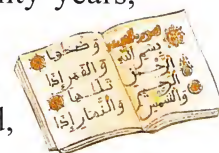 nity years,
بسم الله
الرحمن
الرحيم
والشمس
وضحاها
والقمر إذا
تلاها
والنهار إذا
d,